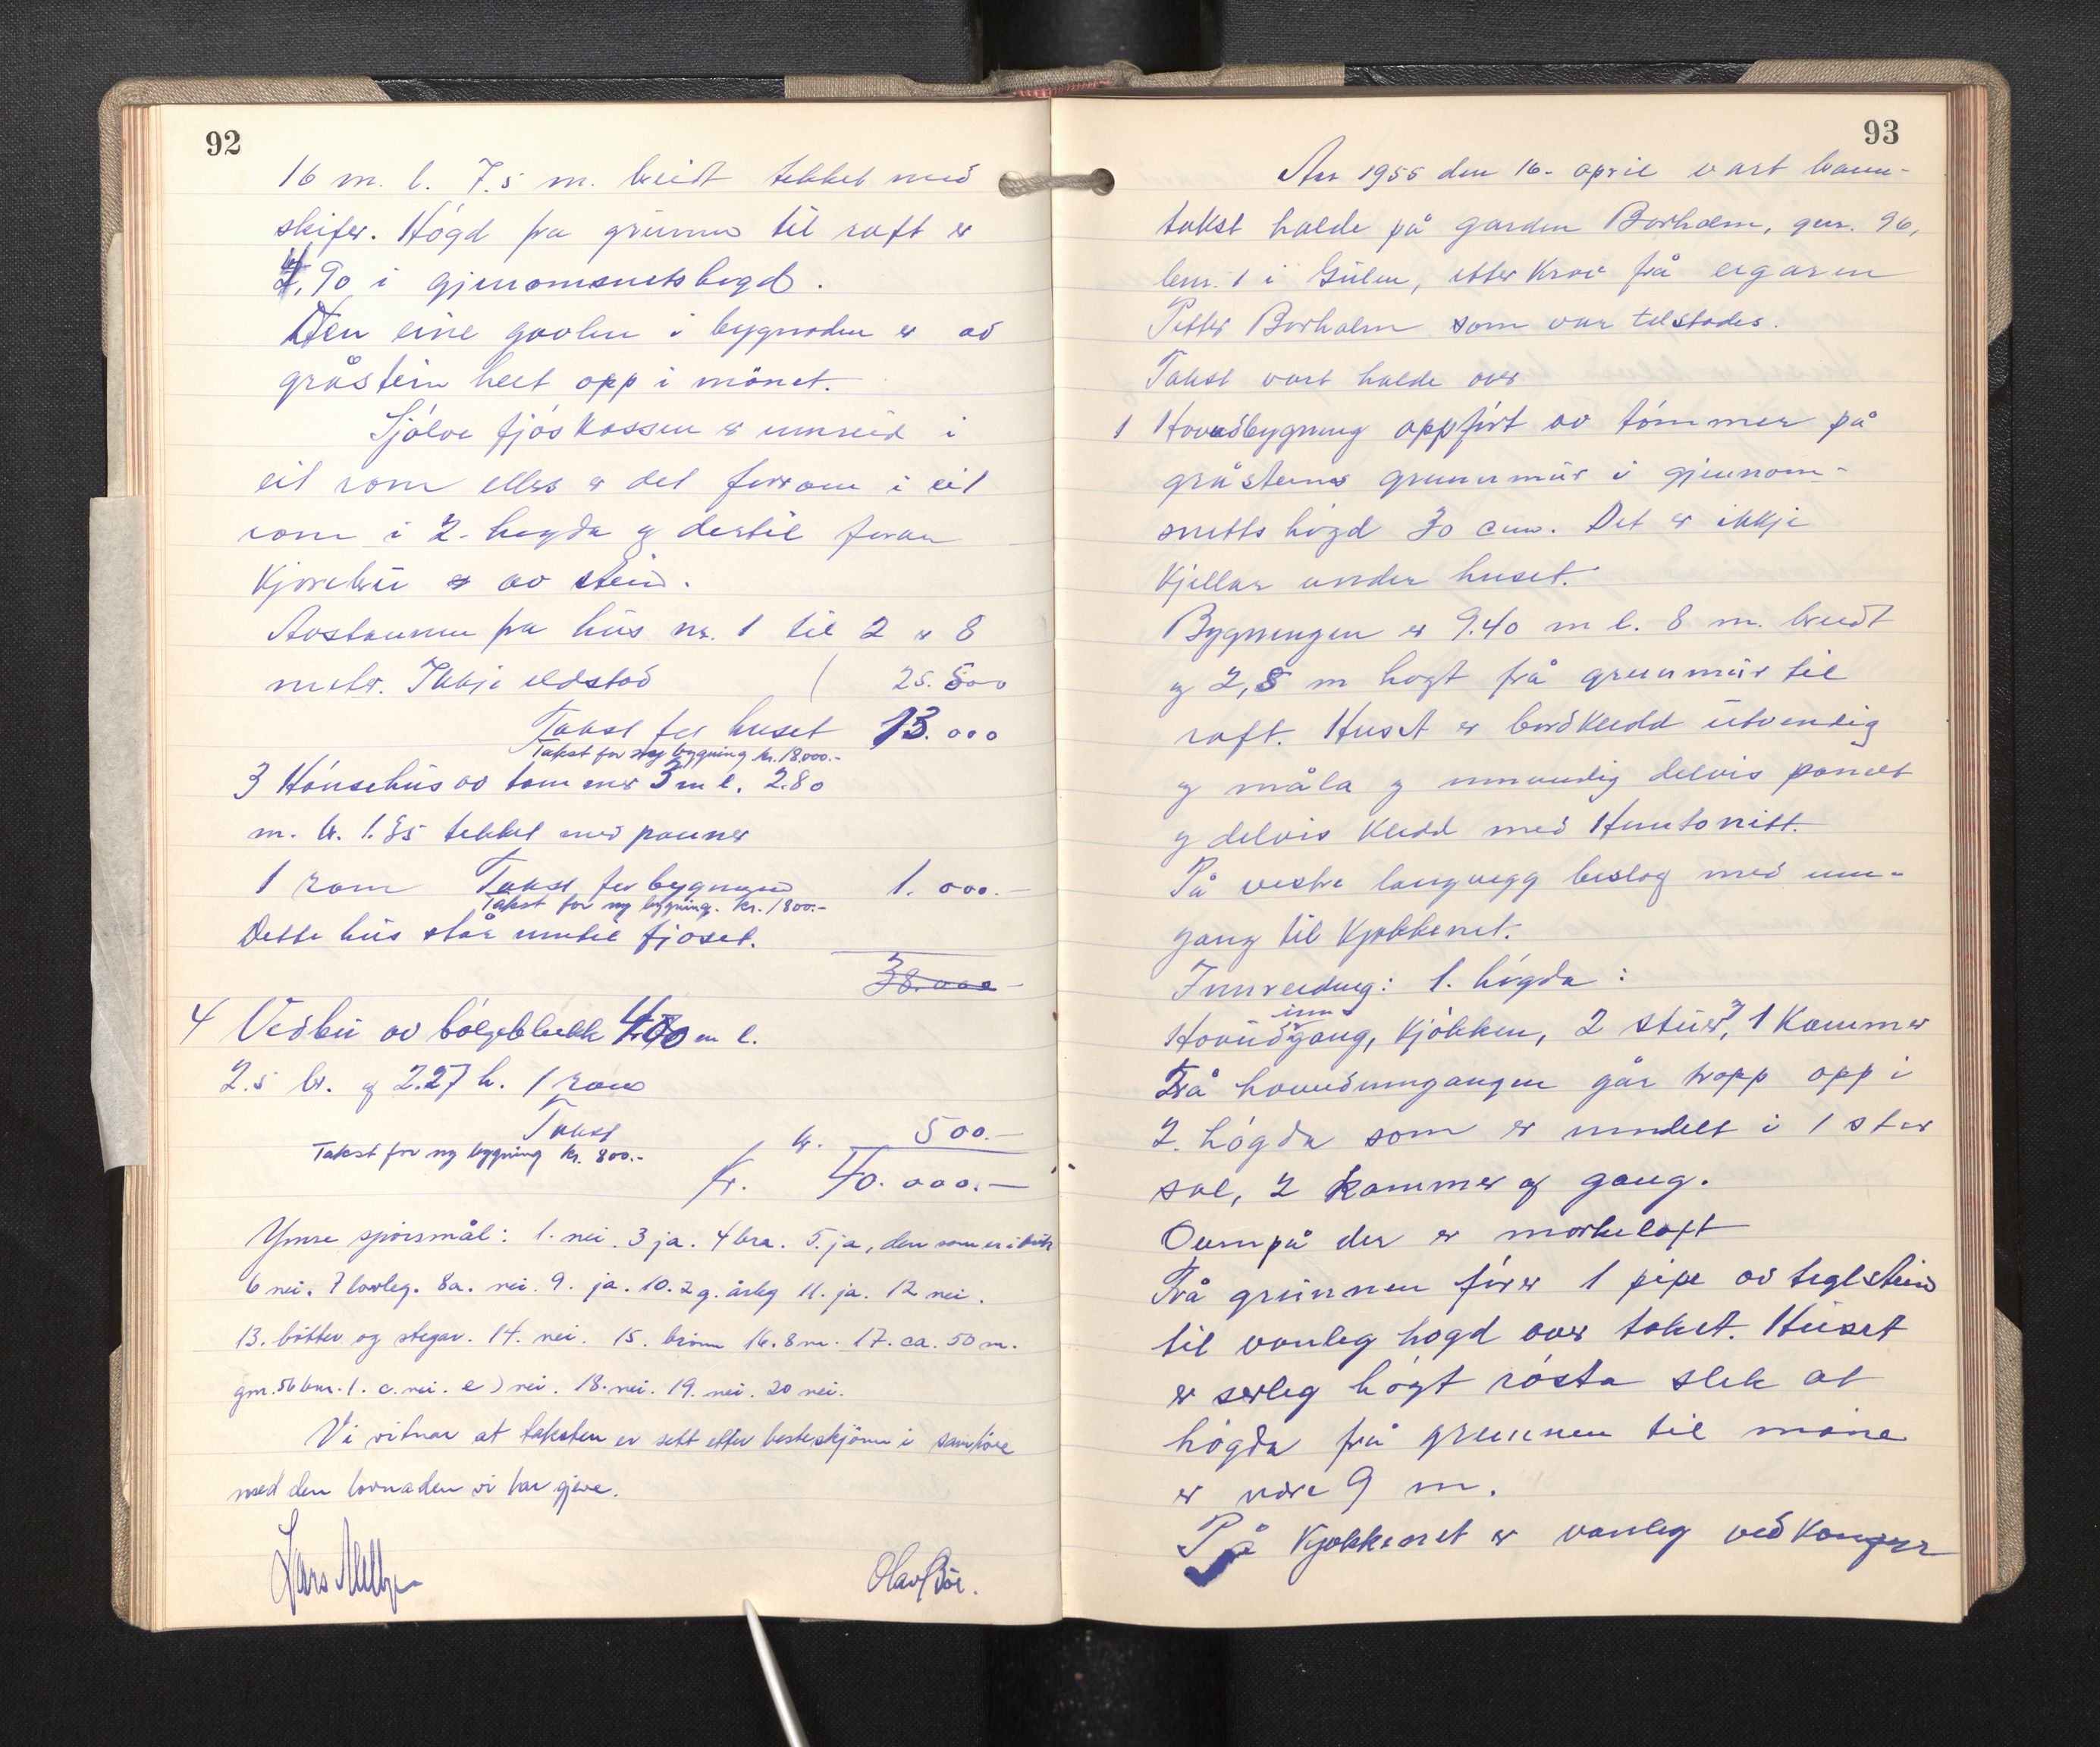 92
16 m. l. 7.5 m. breidt tekket med
skifer. Högd fra grunn til raft er
4,90 i gjenomsnetshogd.
Den eine gavlen i bygnaden er av
gråstein heilt opp i mönet.
Sjölve fjöskassen er innreid i
eit rom elles er det forrom i eit
rom i 2. høgda og dertil foran
av stein.
Avstannen fra hus nr. 1 til 2 er 8
meter. Ikkje eldstad ( 25.500
Takst for huset 13.000
Takst for ny bygning kr. 18.000.-
3 Hönsehus av tømmer 3 m l. 2.80
m. br. 1.85 tekket med panner
1 rom Takst for bygningen 1.000.-
Takst for ny bygning. kr. 1800.-
Dette hus står inntil fjoset.
38.000-
4 Vedbu av bölgeblekk m l.
2.5 br. og 2.27 h. 1 rom
Takst kr. 500.-
Takst for ny bygning kr. 800.-
Kr. 40.000.-
Ymse spörsmål: 1. nei. 3 ja. 4 bra. 5. ja, den som er i bruk
6 nei. 7 lovleg. 8a. nei. 9. ja. 10. 2 g. årleg 11. ja. 12 nei.
13. bötter og stegar. 14. nei. 15. brönn 16. 8 m. 17. ca. 50 m.
gnr. 56 bnr. 1. c. nei. e) nei. 18. nei. 19. nei. 20 nei.
Vi vitnar at taksten er sett etter beste skjönn i samhöve
med den lovnaden vi har gjeve.
Lars Olav Böe.
93
Aar 1955 den 16. april vart brann-
takst halde på garden Borholm, gnr. 96,
bnr. 1 i Gulen, etter krav frå eigaren
Petter Borholm som var tilstades.
Takst vart halde over
1 Hovudbygning oppfört av tömmer på
gråsteins grunnmur i gjennom-
snitts högd 30 cm. Det er ikkje
Kjellar under huset.
Bygningen er 9.40 m l. 8 m. breidt
og 2,8 m hogt frå grunnmur til
raft. Huset er bordkledd utvendig
og måla og innvendig delvis panelt
og delvis kledd med Huntonitt.
På vestre langvegg beslag med inn-
gang til Kjøkkenet.
Innreiding: 1. högda:
inn
Hovudgang, Kjökken, 2 stuer, 1 Kammer
Frå hovudinngangen går tropp opp i
2. högda som er inndelt i 1 stor
sal, 2 kammer og gang.
Ovenpå der er mørkeloft
Frå grunnen förer 1 pipe av teglstein
til vanleg hogd over taket. Huset
er serleg högt rösta slik at
högda frå grunnen til möne
er vore 9 m.
På Kjøkkenet er vanleg vedkomfyr